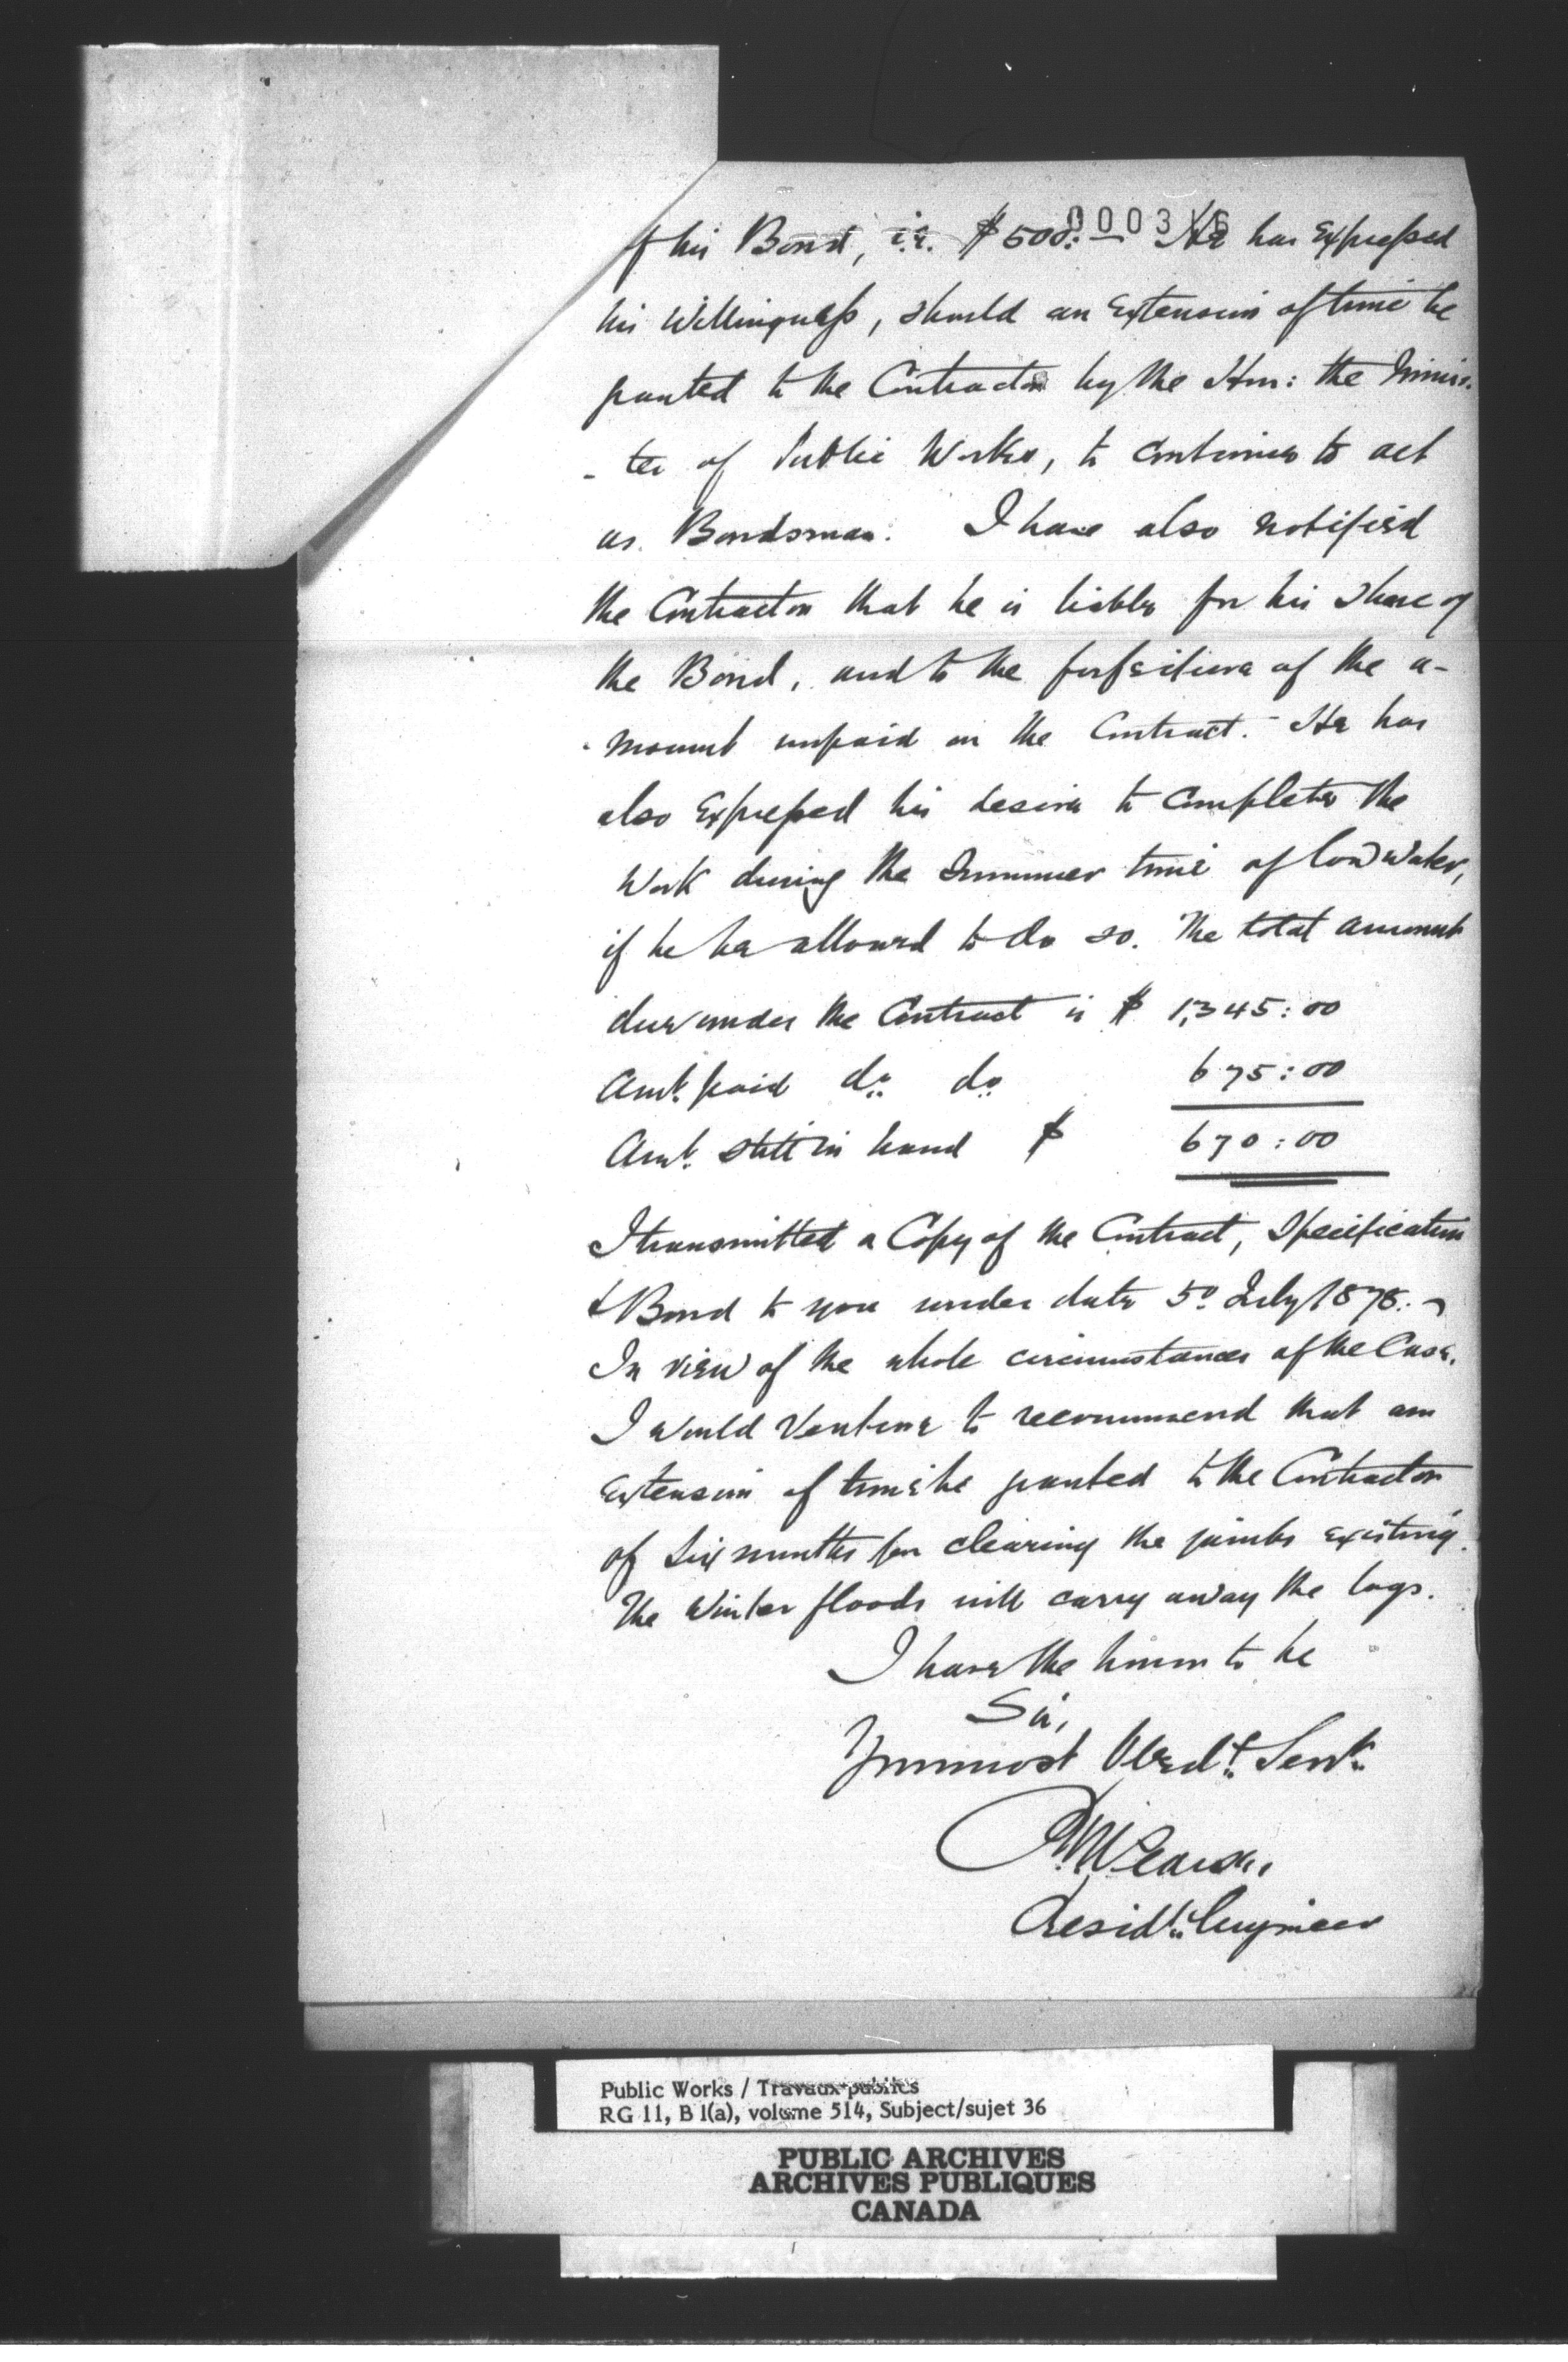 of his Bond, i.e. $500:— He has Expressed
his Willingness, should an Extension of time be
granted to the Contractor by the Hon: the Minis-
-ter of Public Works, to continue to act
as Bondsman. I have also notified
the Contractor that he is liable for his Share of
the Bond, and to the forfeiture of the a-
-mount unpaid on the Contract. He has
also Expressed his desire to Complete the
Work during the Summer time of low water,
if he be allowed to do so. The total amount
due under the Contract is $ 1,345:00
Amt. paid do. do. 675:00
Amt. still in hand $ 670:00
I transmitted a Copy of the Contract, Specification
& Bond to you under date 5o July 1878.
In view of the whole circumstances of the Case,
I would Venture to recommend that an
extension of time be granted to the Contractor
of Six months for clearing the jambs existing.
The Winter floods will carry away the logs.
I have the honor to be
Sir,
Your most Obedt. Servt.
Residt. Engineer
Public Works / Travaux publics
RG 11, B 1(a), volume 514, Subject/sujet 36
PUBLIC ARCHIVES
ARCHIVES PUBLIQUES
CANADA